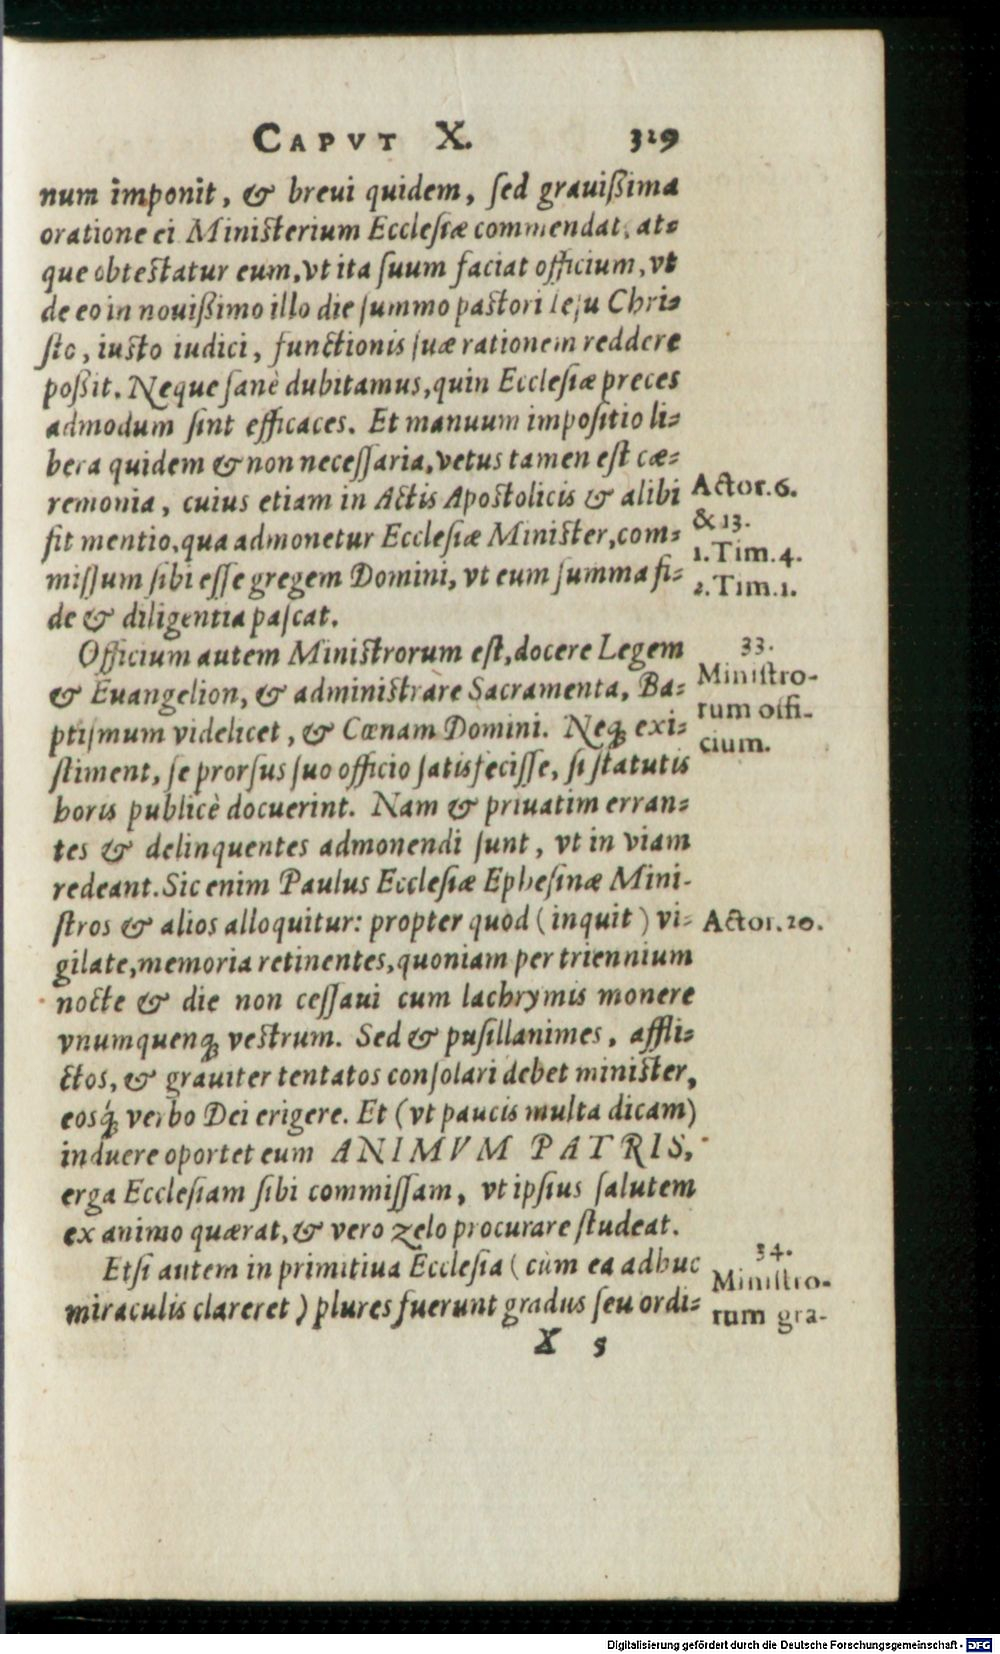 CAPVT X. 319
num imponit, & breui quidem, ſed grauißima
oratione ei Miniſterium Eccleſiæ commendat, at-
que obteſtatur eum, vt ita ſuum faciat officium, vt
de eo in nouißimo illo die ſummo paſtori Ieſu Chri-
ſto, iuſto iudici, functionis ſuæ rationem reddere
poßit. Neque ſanè dubitamus, quin Eccleſiæ preces
admodum ſint efficaces. Et manuum impoſitio li-
bera quidem & non neceſſaria, vetus tamen eſt cæ-
remonia, cuius etiam in Actis Apoſtolicis & alibi
fit mentio, qua admonetur Eccleſiæ Miniſter, com-
miſſum ſibi eſſe gregem Domini, vt eum ſumma fi-
de & diligentia paſcat.
Actor.6.
& 13.
1.Tim.4.
2.Tim.1.
Officium autem Miniſtrorum eſt, docere Legem
& Euangelion, & adminiſtrare Sacramenta, Ba-
ptiſmum videlicet, & Cœnam Domini. Neq; exi-
ſtiment, ſe prorſus ſuo officio ſatisfeciſſe, ſi ſtatutis
horis publicè docuerint. Nam & priuatim erran-
tes & delinquentes admonendi ſunt, vt in viam
redeant. Sic enim Paulus Eccleſiæ Epheſinæ Mini-
ſtros & alios alloquitur: propter quod (inquit) vi-
gilate, memoria retinentes, quoniam per triennium
nocte & die non ceſſaui cum lachrymis monere
vnumquenq; veſtrum. Sed & puſillanimes, affli-
ctos, & grauiter tentatos conſolari debet miniſter,
eosq́; verbo Dei erigere. Et (vt paucis multa dicam)
induere oportet eum ANIMVM PATRIS,
erga Eccleſiam ſibi commiſſam, vt ipſius ſalutem
ex animo quærat, & vero zelo procurare ſtudeat.
33.
Miniſtro-
rum offi-
cium.
Actor.20.
Etſi autem in primitiua Eccleſia (cùm ea adhuc
miraculis clareret) plures fuerunt gradus ſeu ordi-
34.
Miniſtro-
rum gra-
X 5
Digitalisierung gefördert durch die Deutsche Forschungsgemeinschaft - DFG